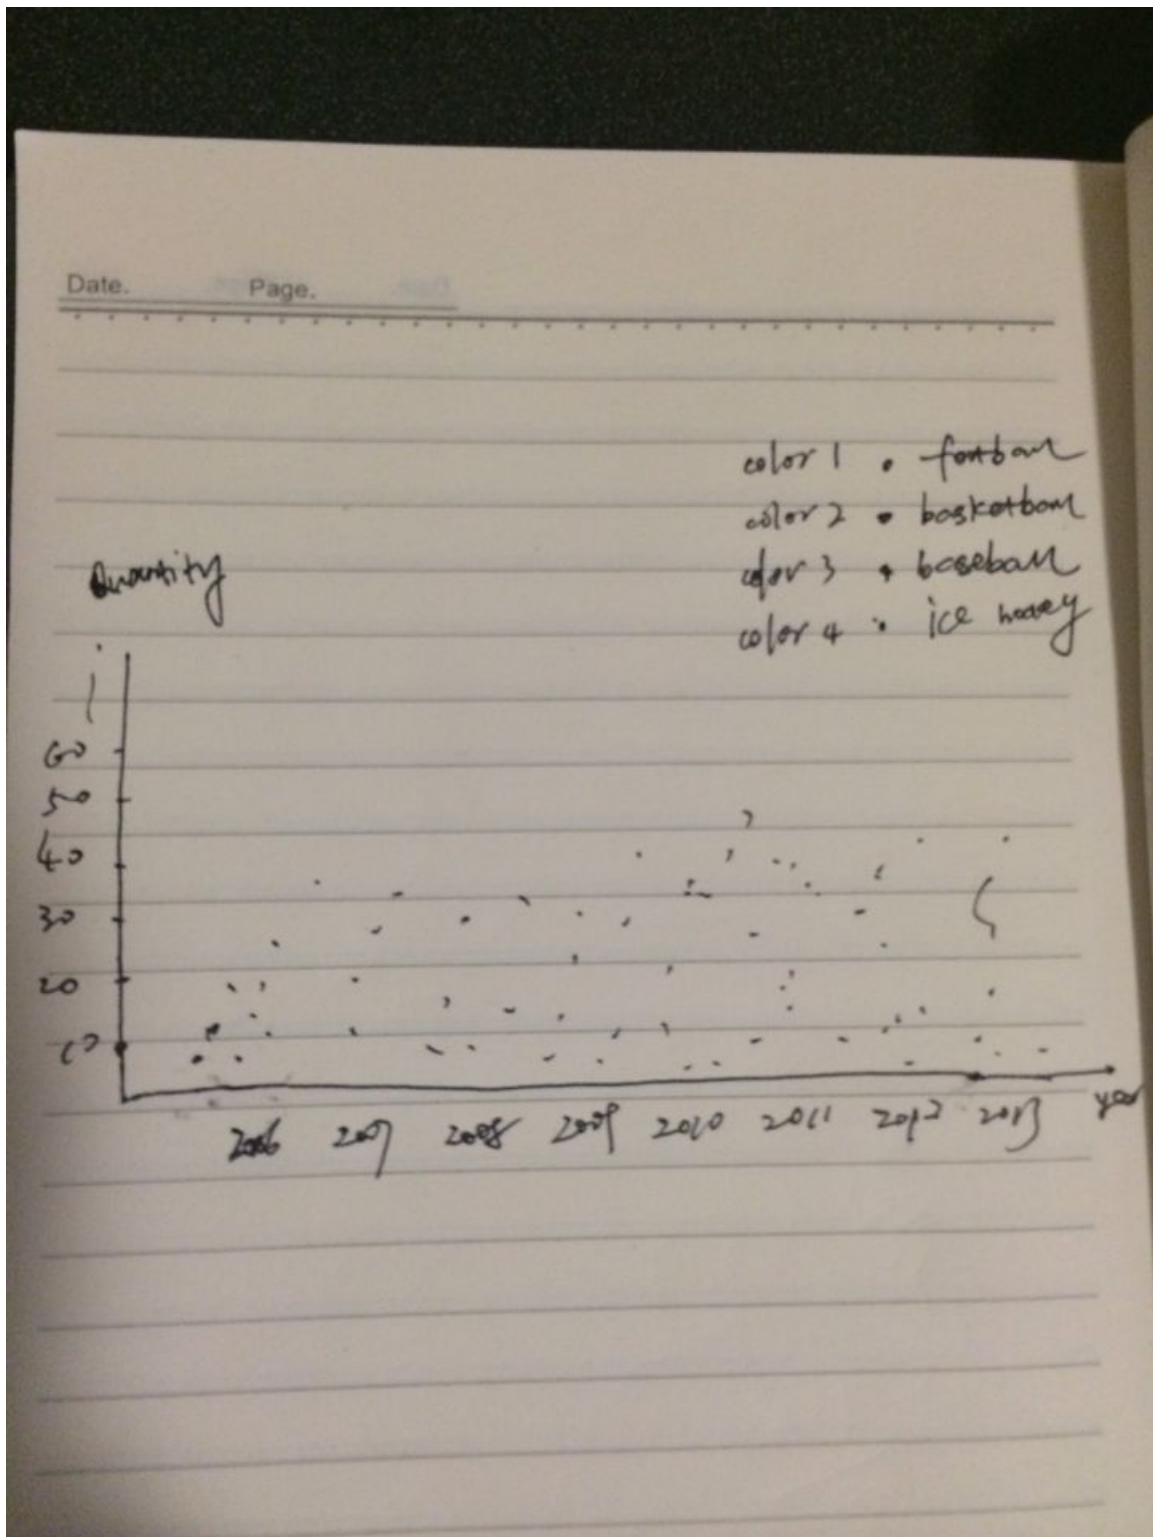 Date. Page.
color 1 • football
color 2 • basketball
color 3 • baseball
color 4 • ice hockey
Quantity
60
50
40
30
20
10
2006 2007 2008 2009 2010 2011 2012 2013 year